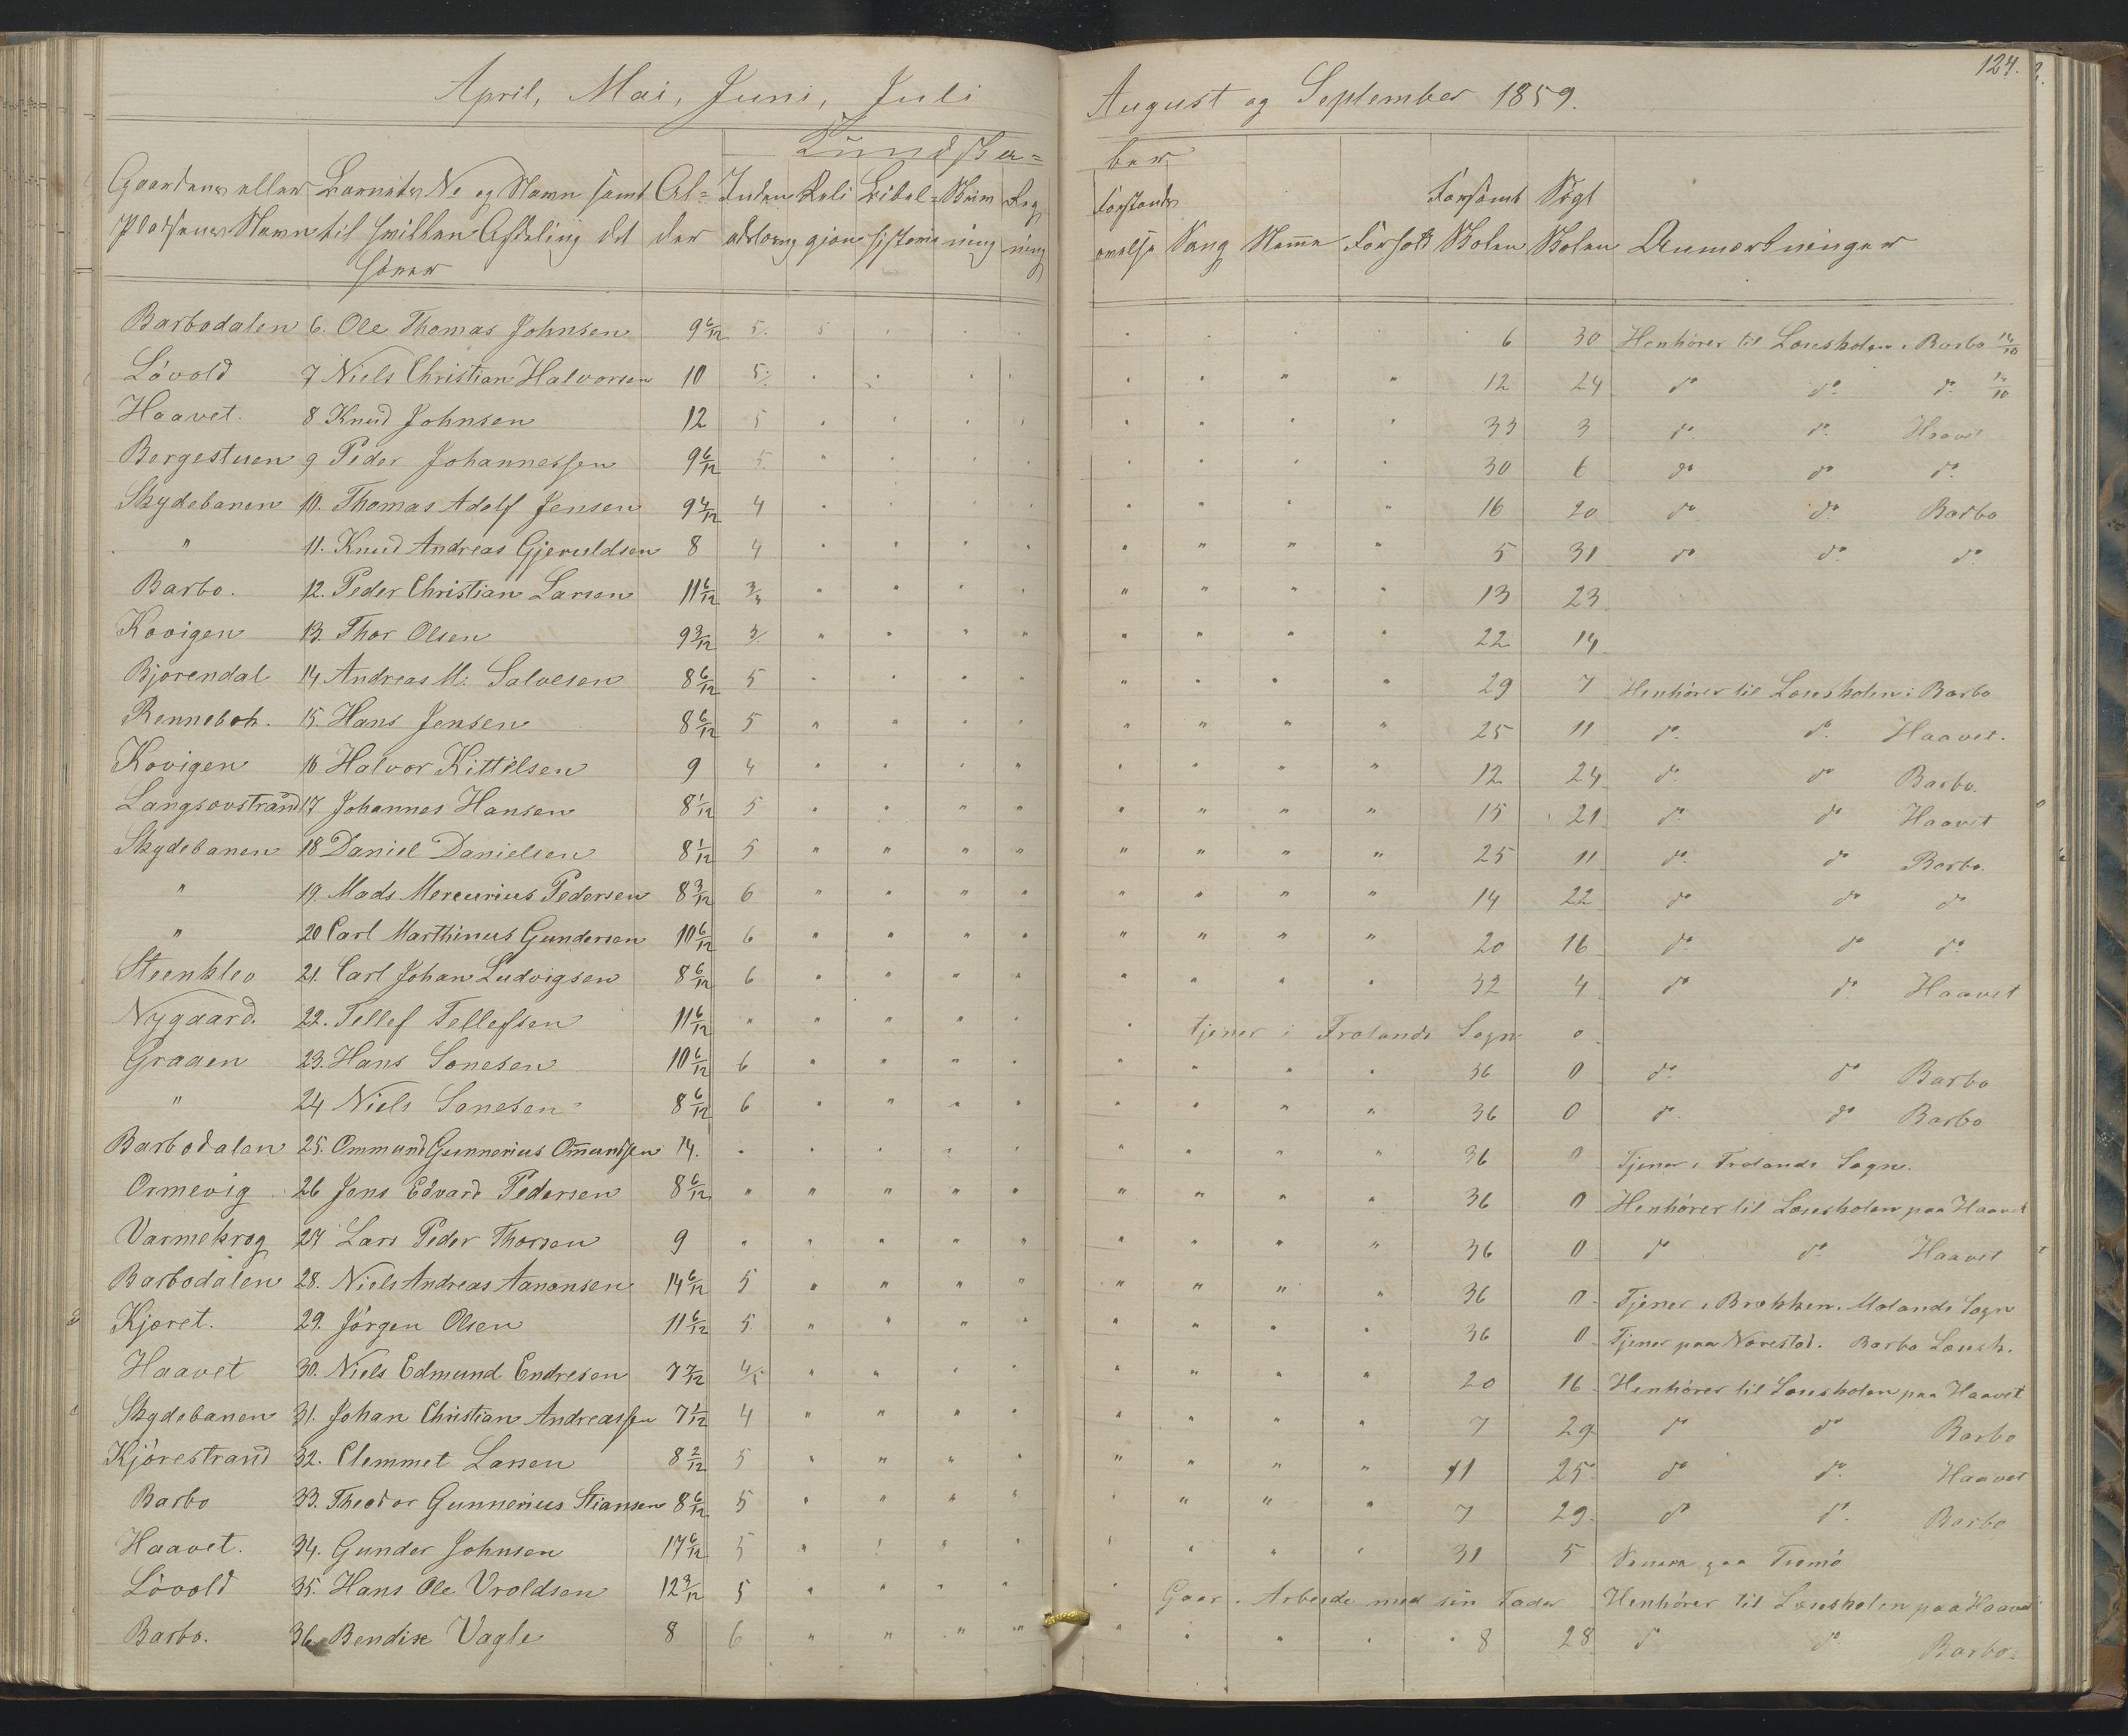 April, Mai, Juni, Juli
August og September 1859.
124.
Kundska=
ber
Gaardens eller Barnets No og Navn samt Al= Inden Reli Bibel= Skriv Reg
Pladsens Navn til hvilken Afdeling det der adslæsng gion historie ning ning
hörer
Forstands Forsömt Sögt
övelse Sang Flid Forhold Skolen Skolen Anmærkninger
Barbodalen 6. Ole Thomas Johnsen 9 6/12 5 5 " " " " " " " 6 30 Henhörer til Læseskolen i Barbo 14/10
Lövold 7 Niels Christian Halvorsen 10 5 " " " " " " " " 12 24 do do do 14/10
Haavet. 8 Knud Johnsen 12 5 " " " " " " " " 33 3 do do Haavet
Bergestuen 9 Peder Johannessen 9 6/12 5 " " " " " " " " 30 6 do do do
Skydebanen 10. Thomas Adolf Jensen 9 4/12 4 " " " " " " " " 16 20 do do Barbo
" 11. Knud Andreas Gjeruldsen 8 4 " " " " " " " " 5 31 do do do
Barbo. 12. Peder Christian Larsen 11 6/12 3/4 " " " " " " " " 13 23
Kovigen 13. Thor Olsen 9 3/12 3 " " " " " " " " 22 14
Bjorendal 14 Andreas M. Salvesen 8 6/12 5 " " " " " " " " 29 7 Henhörer til Læseskolen i Barbo
Renneboh. 15. Hans Jensen 8 6/12 5 " " " " " " " " 25 11 do do Haavet.
Kovigen 16 Halvor Kittilsen 9 4 " " " " " " " " 12 24 do do Barbo.
Langsovstrand 17 Johannes Hansen 8 1/12 5 " " " " " " " " 15 21 do do Haavet
Skydebanen 18 Daniel Danielsen 8 1/12 5 " " " " " " " " 25 11 do do Barbo.
" 19. Mads Mercurius Pedersen 8 3/12 6 " " " " " " " " 14 22 do do do
" 20 Carl Marthinus Gundersen 10 6/12 6 " " " " " " " " 20 16 do do do
Steenklev 21. Carl Johan Ludvigsen 8 6/12 6 " " " " " " " " 32 4 do do Haavet
Nygaard. 22. Tellef Tellefsen 11 6/12 " " " " " " tjener i Frolands Sogn 0
Graaen 23. Hans Sonesen 10 6/12 6 " " " " " " " " 36 0 do do Barbo
" 24 Niels Sonesen 8 6/12 6 " " " " " " " " 36 0 do do Barbo
Barbodalen 25. Ommund Gunnerius Omundsen 14. " " " " " " " " " 36 0 Tjener i Frolands Sogn.
Ormevig 26 Jens Edvard Pedersen 8 6/12 " " " " " " " " " 36 0 Henhörer til Læseskolen paa Haavet
Varmekrog 27 Lars Peder Thorsen 9 " " " " " " " " " 36 0 do do Haavet
Barbodalen 28. Niels Andreas Aanonsen 14 6/12 5 " " " " " " " " 36 0 Tjener i Brækken. Molands Sogn
Kjoret. 29. Jörgen Olsen 11 6/12 5 " " " " " " " " 36 0 Tjener paa Norestad. Barbo Læsesk.
Haavet 30. Niels Edmund Endresen 7 7/12 4/5 " " " " " " " " 20 16 Henhörer til Læseskolen paa Haavet
Skydebanen 31. Johan Christian Andreassen 7 1/12 4 " " " " " " " " 7 29 do do Barbo
Kjörestrand 32. Clemmet Larsen 8 2/12 5 " " " " " " " " 11 25 do do Haavet
Barbo 33. Theodor Gunnerius Stiansen 8 6/12 5 " " " " " " " " 7 29 do do Barbo
Haavet. 34. Gunder Johnsen 17 6/12 5 " " " " " " " " 31 5 paa Tromö
Lövold 35. Hans Ole Vroldsen 12 3/12 5 " " " " " Gaar i Arbeide med sin Fader Henhörer til Læseskolen paa Haavet
Barbo. 36. Bendix Vagle 8 6 " " " " " " " " 8 28 do do Barbo.